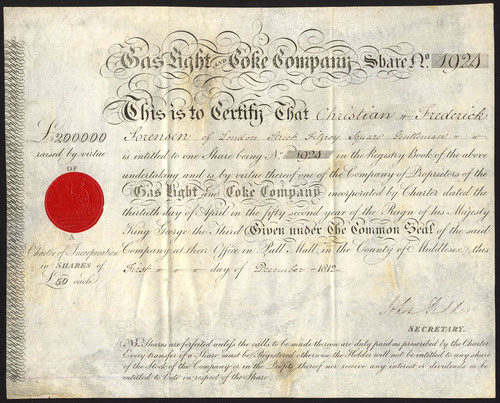 Gas Light and Coke Company Share No. 1924
This is to Certify That Christian Frederick
Sorensen of London Street Fitzroy Square Gentleman
is intitled to one Share being No. 1924 in the Registry Book of the above
undertaking and is by virtue thereof one of the Company of Proprietors of the
Gas Light and Coke Company incorporated by Charter dated the
thirtieth day of April in the fifty second year of the Reign of his Majesty
King George the Third Given under the Common Seal of the said
Company at their Office in Pall Mall, in the County of Middlesex, this
First day of December 1812
£200000
raised by virtue
OF
A
Charter of Incorporation
in SHARES of
£50 each.
SECRETARY.
NB. Shares are forfeited unless the calls to be made thereon are duly paid as prescribed by the Charter
Every transfer of a Share must be Registered otherwise the Holder will not be intitled to any share
of the Stock of the Company or in the Profits thereof nor receive any interest or dividends or be
intitled to Vote in respect of the Share.